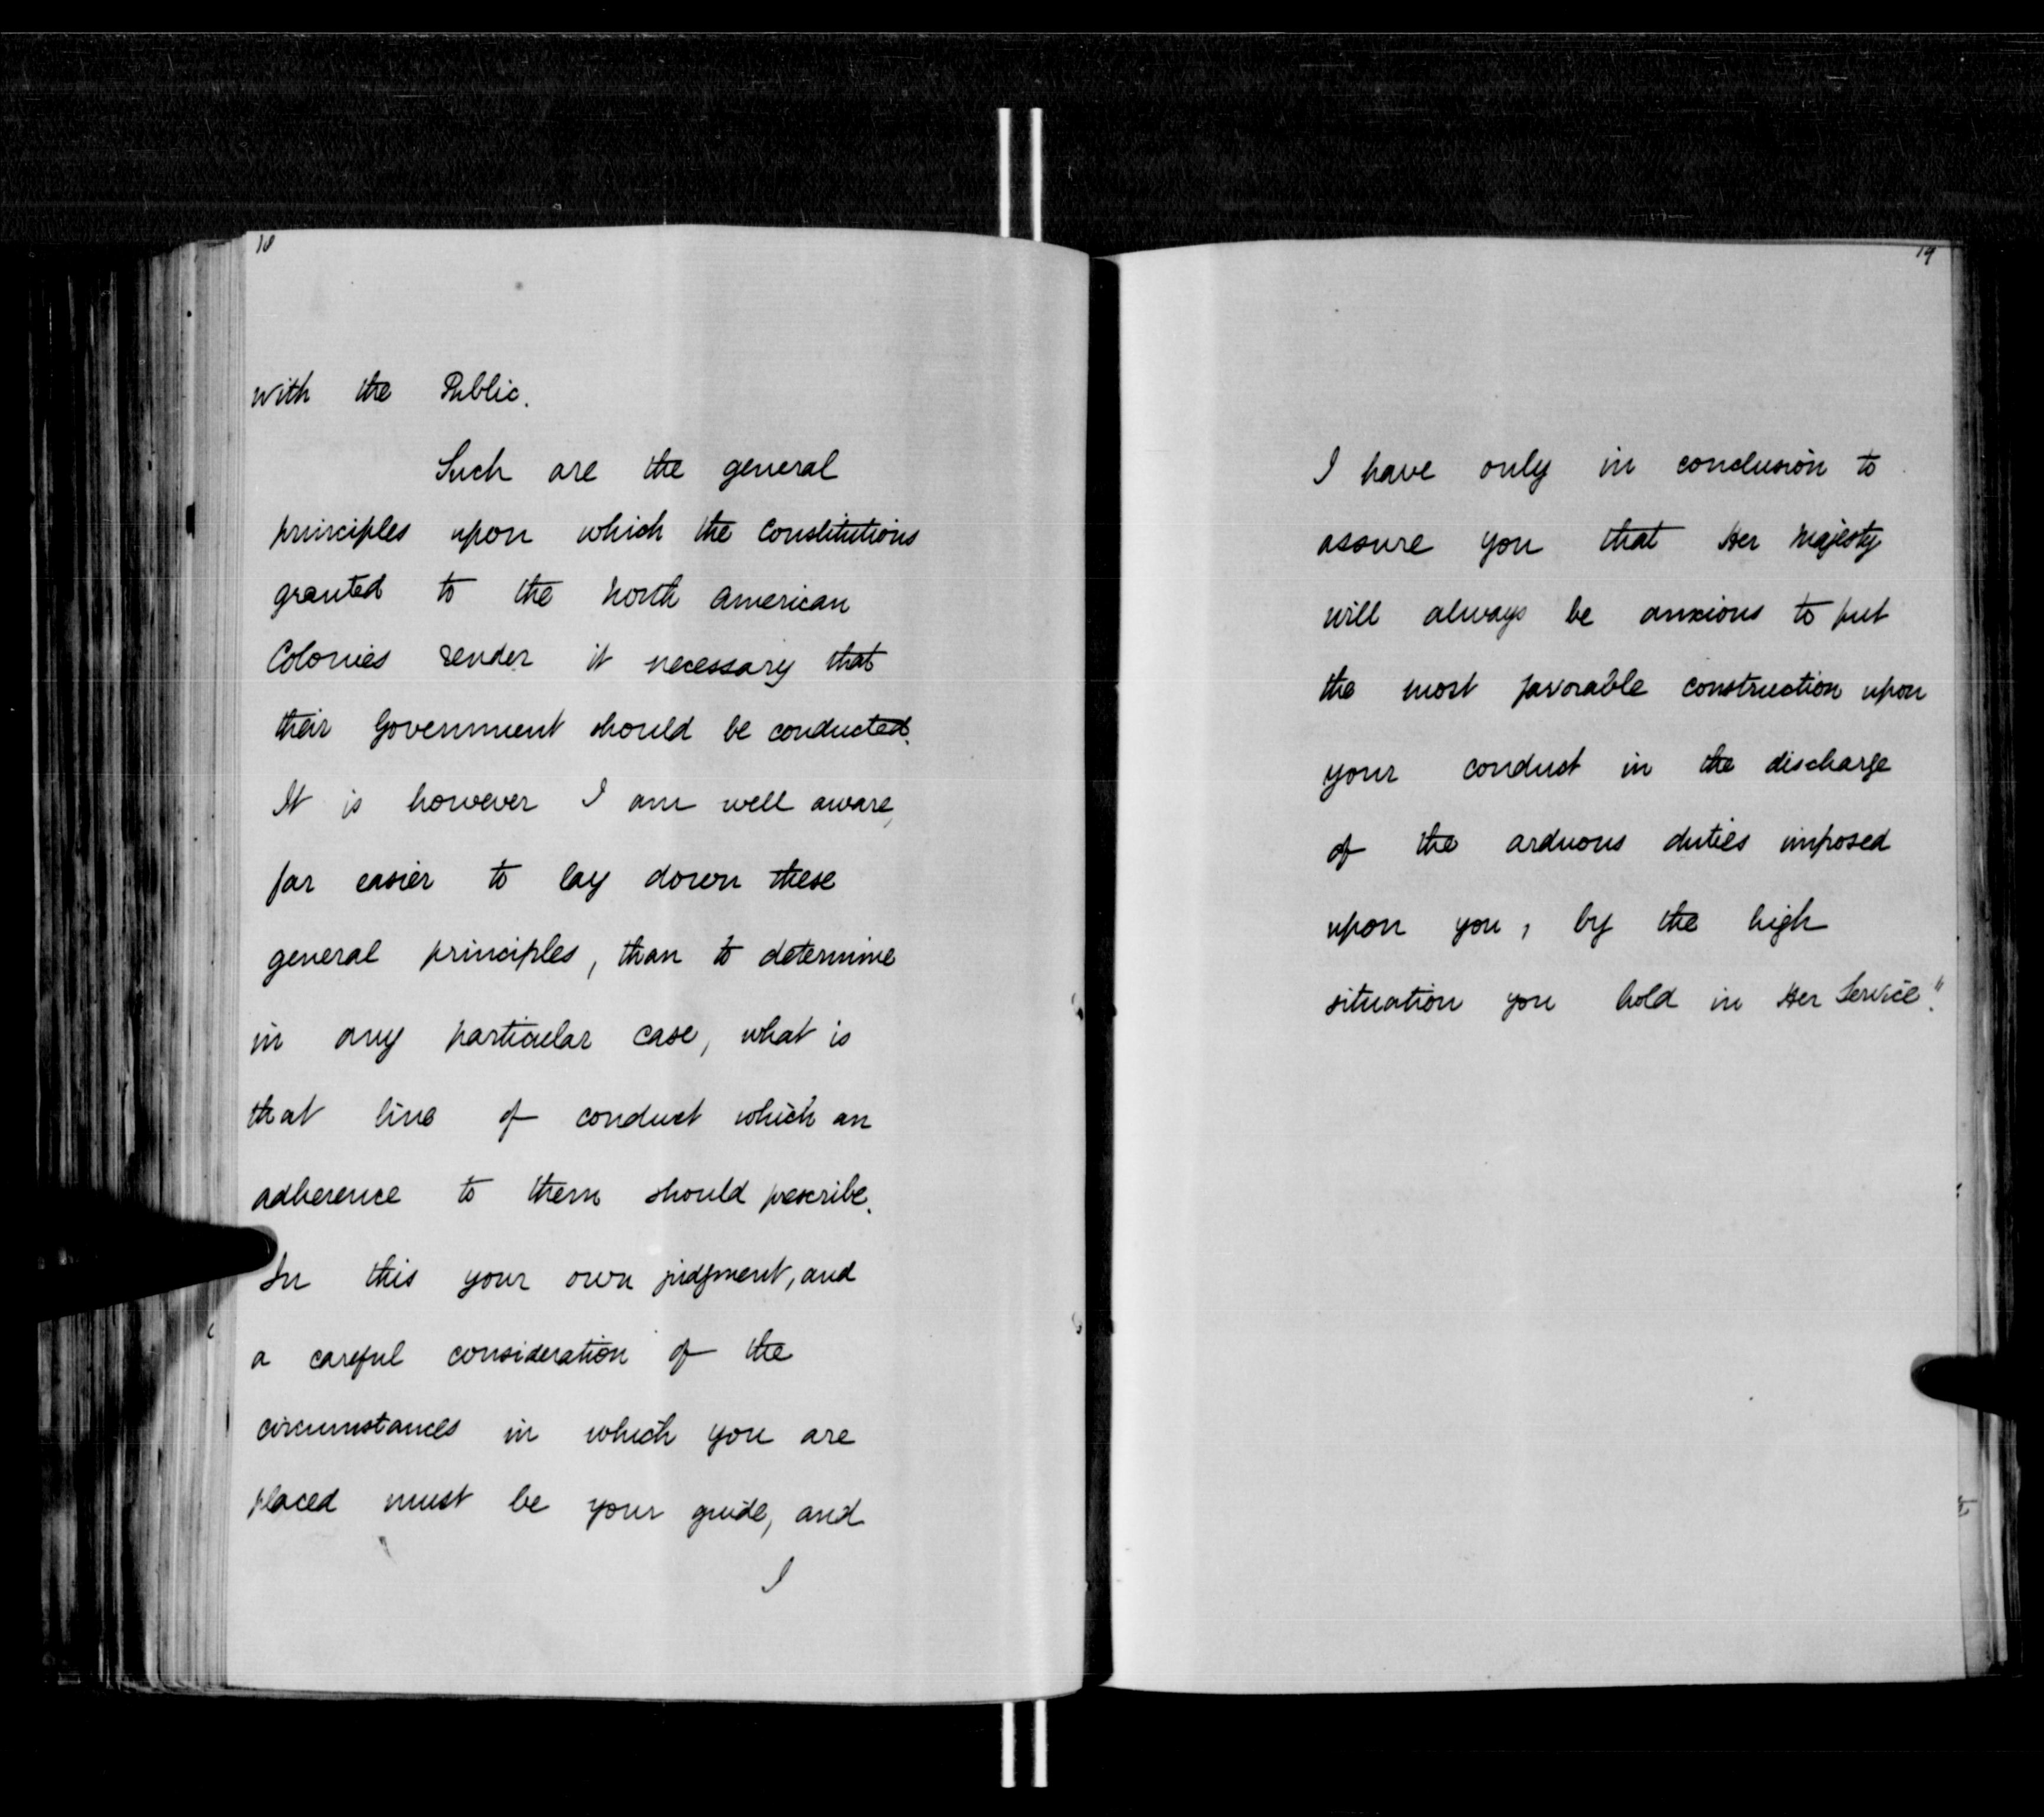 18
with the Public.
Such are the general
principles upon which the Constitutions
granted to the North American
Colonies render it necessary that
their Government should be conducted.
It is however I am well aware,
far easier to lay down these
general principles, than to determine
in any particular case, what is
that line of conduct which an
adherence to them should prescribe.
In this your own judgment, and
a careful consideration of the
circumstances in which you are
placed must be your guide, and
I
19
I have only in conclusion to
assure you that Her Majesty
will always be anxious to put
the most favorable construction upon
your conduct in the discharge
of the arduous duties imposed
upon you, by the high
situation you hold in Her Service."